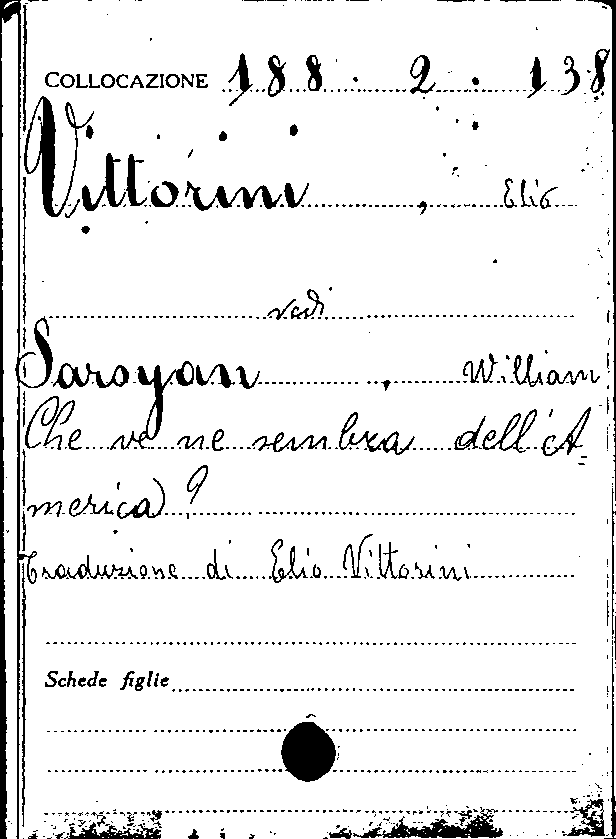 COLLOCAZIONE 188. 2. 138
Vittorini, Elio
vedi
Saroyan, William
Che ve ne sembra dell'A=
merica?
Traduzione di Elio Vittorini
Schede figlie